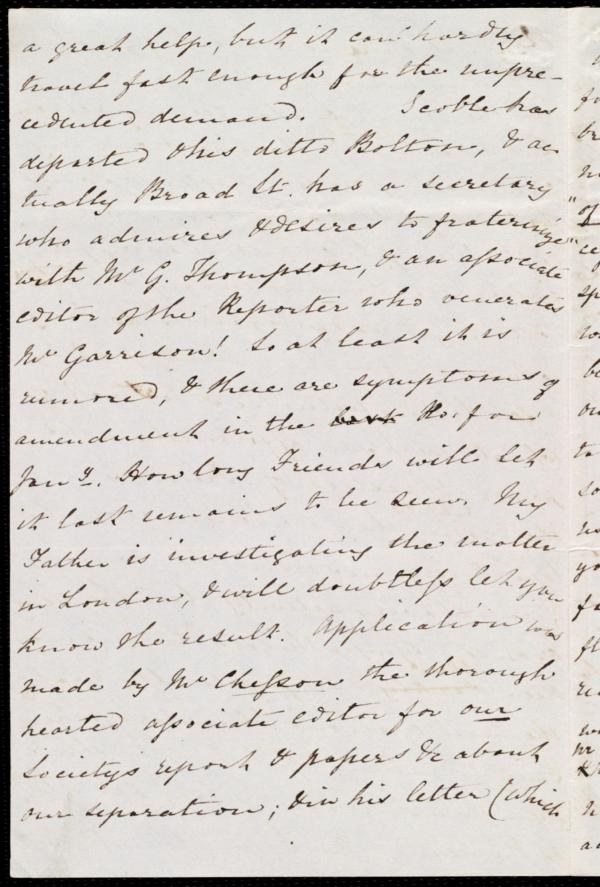 a great help, but it can hardly
travel fast enough for the unpre-
cedented demand. Scoble has
departed & his ditto Bolton, & ac
tually Broad St. has a secretary
who admires & desires to fraternize
with Mr G. Thompson, & an associate
editor of the Reporter who venerates
Mr Garrison! So at least it is
rumored, & there are symptoms of
amendment in the No. for
Jany. How long Friends will let
it last remains to be seen. My
Father is investigating the matter
in London, & will doubtless let you
know the result. Application was
made by Mr Chesson the thorough
hearted associate editor for our
Society's report & papers &c about
our separation; & in his letter (which